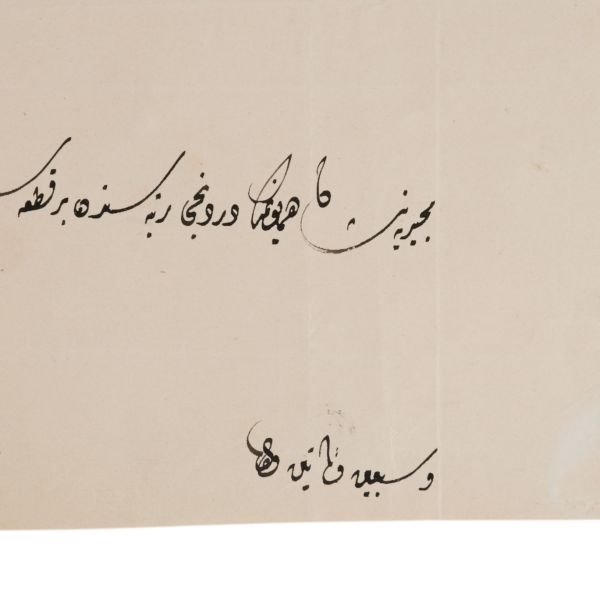 مجیدیه نشان همایونمك دردنجی رتبه سندن بر قطعه سی
وسبعین ومأتین والف